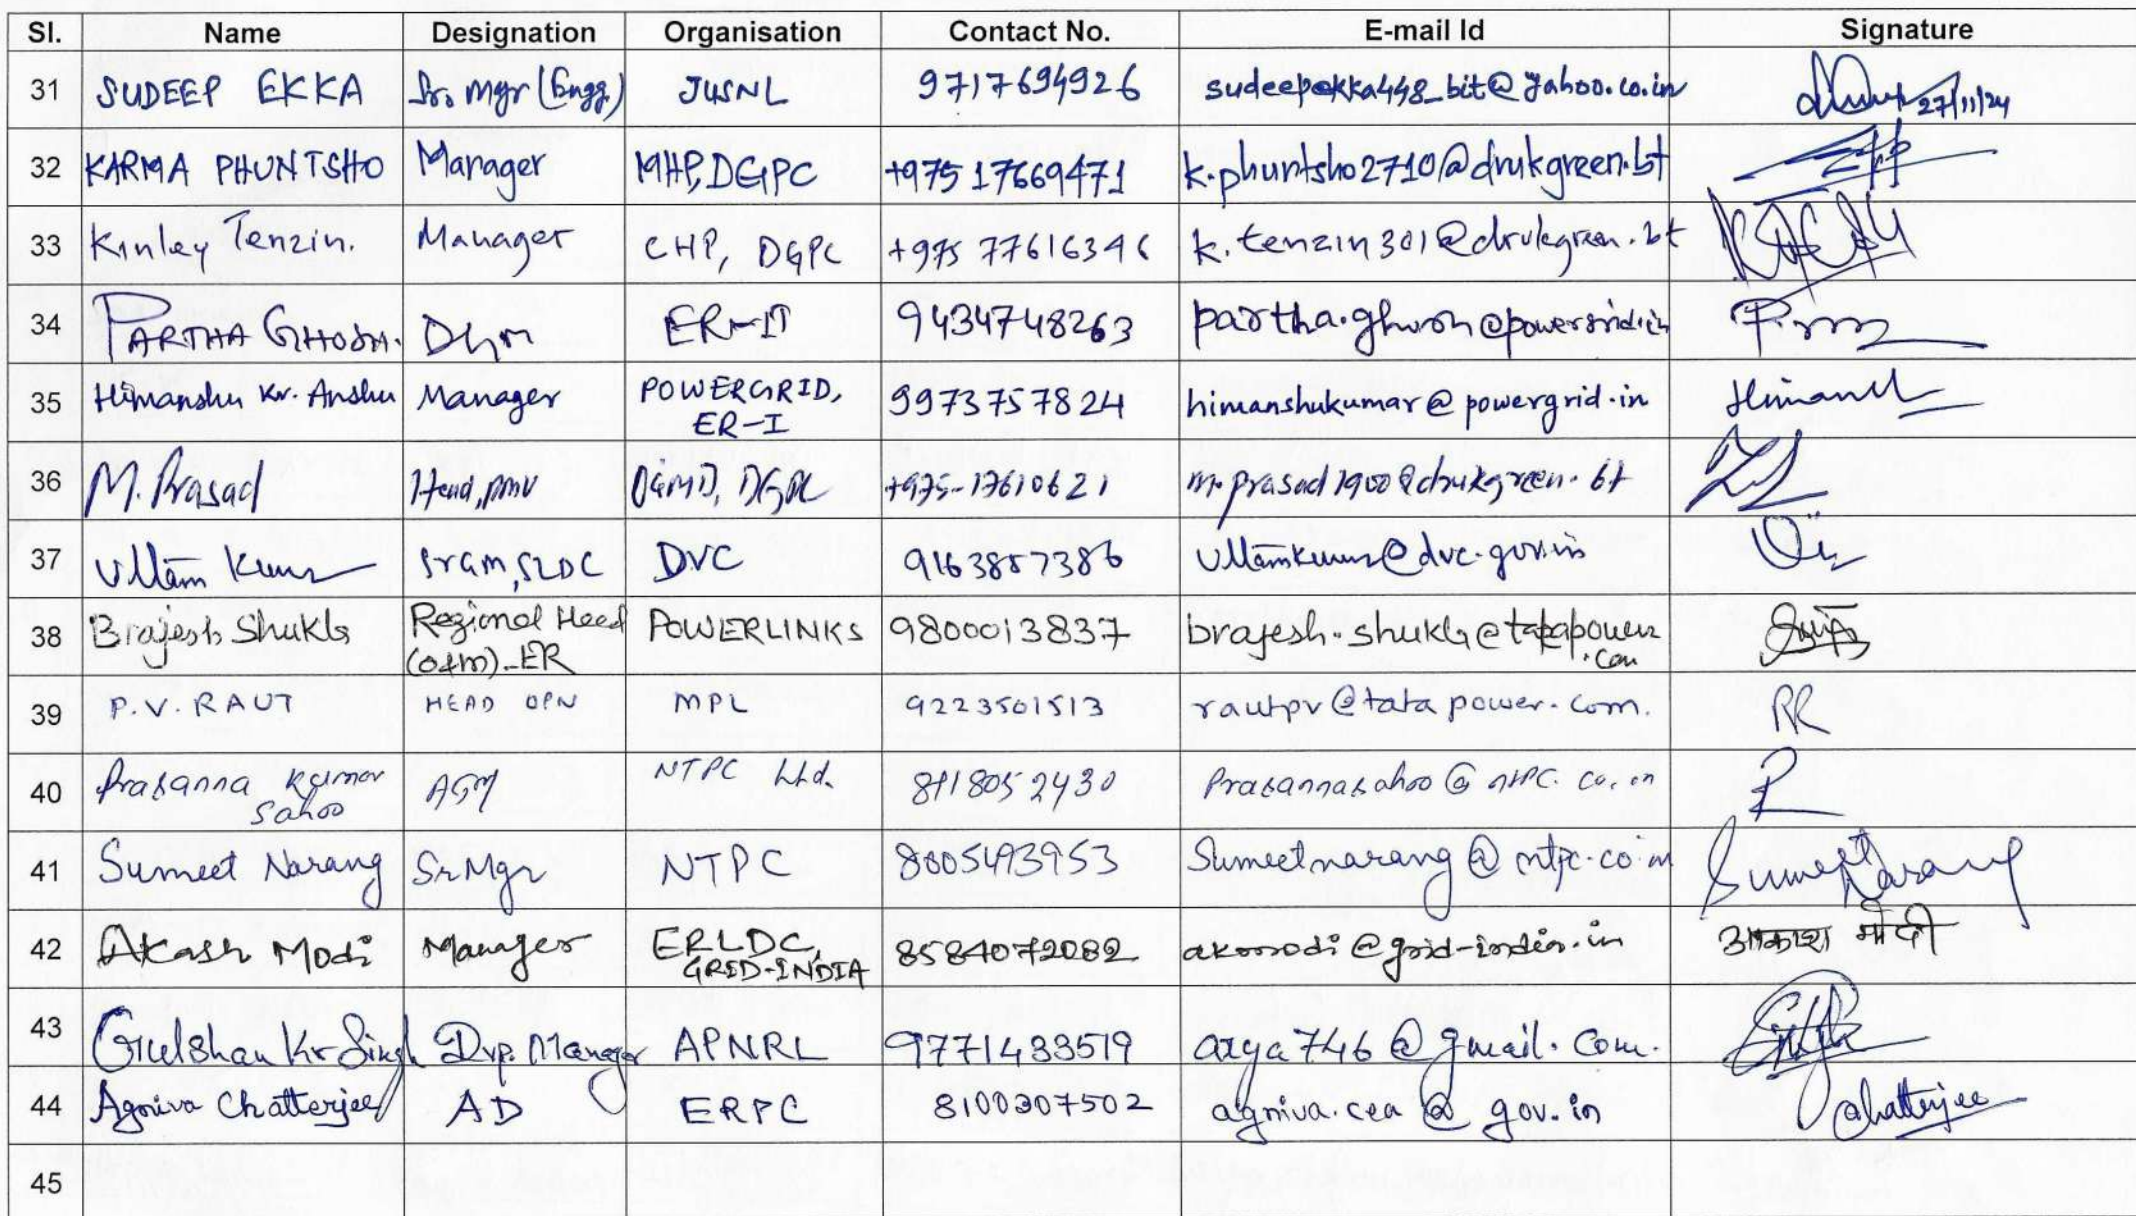 Sl. Name Designation Organisation Contact No. E-mail Id Signature
31 SUDEEP EKKA Sr. Mgr (Engg.) JUSNL 9717694926 sudeepekka448_bit@yahoo.co.in 27/11/24
32 KARMA PHUNTSHO Manager MHP, DGPC +975 17669471 k.phuntsho2710@drukgreen.bt
33 Kinley Tenzin. Manager CHP, DGPC +975 77616346 k.tenzin301@drukgreen.bt
34 PARTHA GHOSH. DGM ER-II 9434748263 partha.ghosh@powergrid.in
35 Himanshu Kr. Anshu Manager POWERGRID, 9973757824 himanshukumar@powergrid.in Himanshu
ER-I
36 M. Prasad Head, DGPC +975-17610621 m.prasad1900@drukgreen.bt
37 Uttam Kumar Sr GM, SLDC DVC 9163857386 uttamkumar@dvc.gov.in
38 Brajesh Shukla Regional Head POWERLINKS 9800013837 brajesh.shukla@tatapower
(O&M)-ER .com
39 P.V. RAUT HEAD OPN MPL 9223501513 rautpv@tatapower.com.
40 Prasanna Kumar AGM NTPC Ltd. 8118052430 Prasannasahoo@ntpc.co.in
Sahoo
41 Sumeet Narang Sr Mgr NTPC 8005493953 Sumeetnarang@ntpc.co.in Sumeet Narang
42 Akash Modi Manager ERLDC, 8584072082 akmodi@grid-india.in आकाश मोदी
GRID-INDIA
43 Gulshan Kr Singh Dyp. Manager APNRL 9771433519 arya746@gmail.com.
44 Agniva Chatterjee AD ERPC 8100307502 agniva.cea@gov.in Chatterjee
45